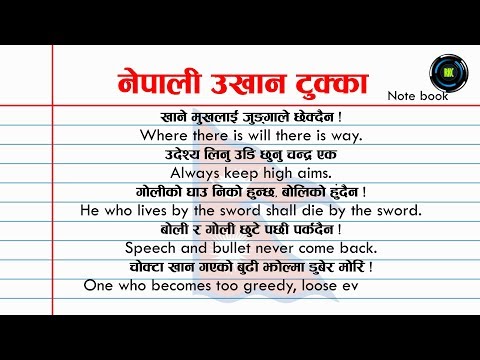 नेपाली उखान टुक्का
RJK
Note book
खाने मुखलाई जुङ्गाले छेक्दैन !
Where there is will there is way.
उदेश्य लिनु उडि छुनु चन्द्र एक
Always keep high aims.
गोलीको घाउ निको हुन्छ. बोलिको हुंदैन !
He who lives by the sword shall die by the sword.
बोली र गोली छुटे पछी पर्कदैन !
Speech and bullet never come back.
चोक्टा खान गएको बुढी झोल्मा डुबेर मोरि !
One who becomes too greedy, loose ev